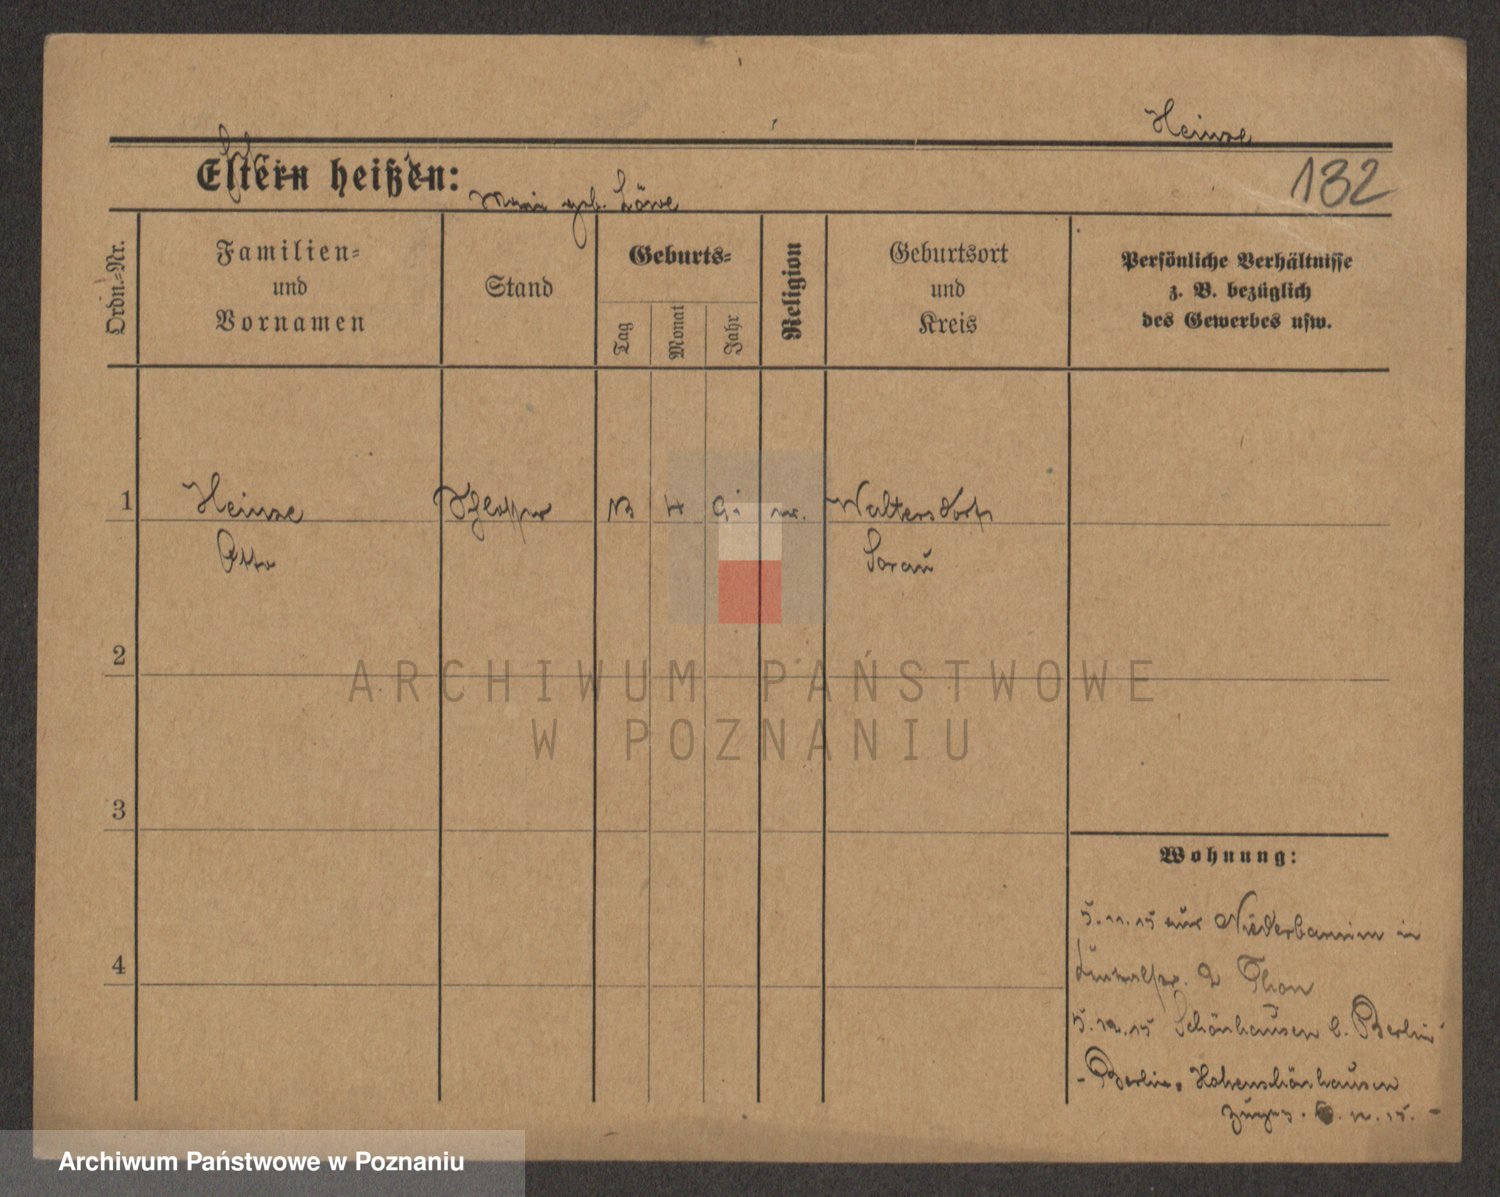 Heinze
132
Eltern heißen:
geb. Löwe
Ordn.-Nr.
Familien-
und
Vornamen
Stand
Geburts-
Tag
Monat
Jahr
Religion
Geburtsort
und
Kreis
Persönliche Verhältnisse
z. B. bezüglich
des Gewerbes usw.
1
Heinze
Schlosser
13
4
91
Waltersdorf
Otto
Sorau
2
ARCHIWUM PAŃSTWOWE
W POZNANIU
3
Wohnung:
5.11.15 aus Niederbarnim in
4
2 Thon
5.12.15 Schönhausen b. Berlin
- Berlin-Hohenschönhausen
12.15. -
Archiwum Państwowe w Poznaniu